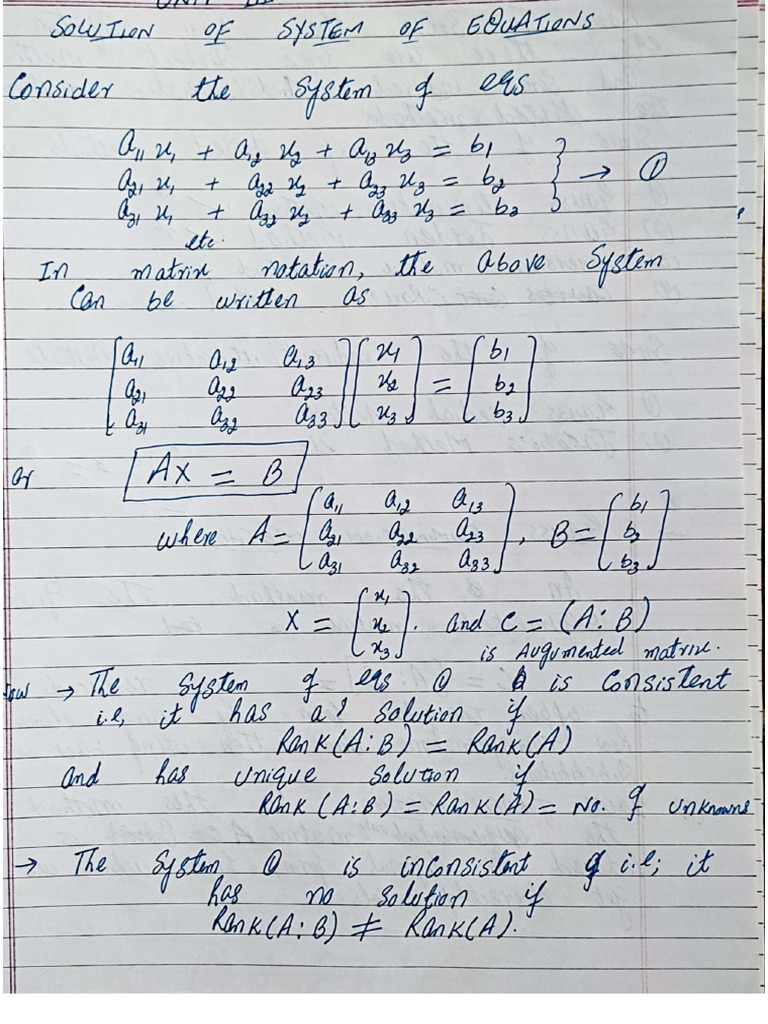 UNIT III
SOLUTION OF SYSTEM OF EQUATIONS
Consider the System of eqs
a11 x1 + a12 x2 + a13 x3 = b1
a21 x1 + a22 x2 + a23 x3 = b2 } → ①
a31 x1 + a32 x2 + a33 x3 = b3
etc.
In matrix notation, the above System
Can be written as
[a11 a12 a13] [x1] = [b1]
[a21 a22 a23] [x2] = [b2]
[a31 a32 a33] [x3] = [b3]
or AX = B
where A = [a11 a12 a13; a21 a22 a23; a31 a32 a33], B = [b1; b2; b3]
X = [x1; x2; x3]. and C = (A : B)
is Augumented matrix.
→ The System of eqs ① is Consistent
i.e, it has a Solution if
Rank(A : B) = Rank(A)
and has unique Solution if
Rank (A:B) = Rank(A) = No. of unknowns
→ The System ① is inconsistent i.e; it
has no Solution if
Rank(A : B) ≠ Rank(A).